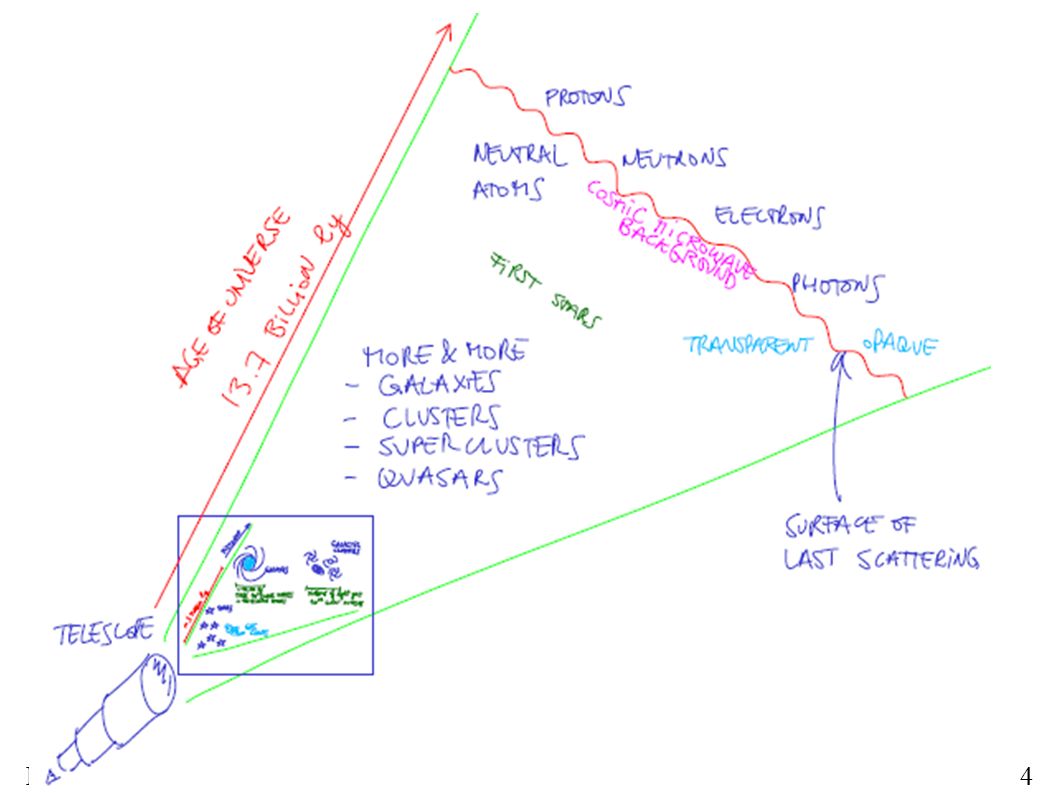 PROTONS
NEUTRAL
ATOMS
NEUTRONS
COSMIC MICROWAVE
BACKGROUND
ELECTRONS
PHOTONS
FIRST STARS
AGE OF UNIVERSE
13.7 BILLION ly
TRANSPARENT
OPAQUE
MORE & MORE
- GALAXIES
- CLUSTERS
- SUPERCLUSTERS
- QUASARS
SURFACE OF
LAST SCATTERING
TELESCOPE
4